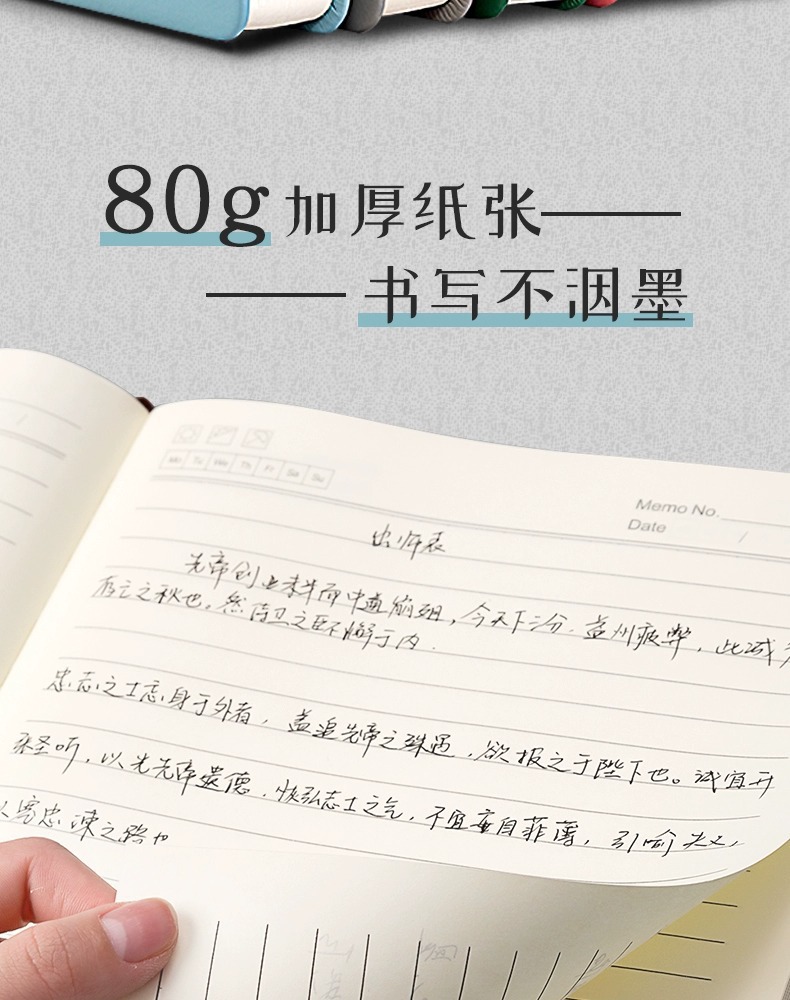 80g加厚纸张——
——书写不洇墨
Mo Tu We Th Fr Sa Su
Memo No.
Date /
出师表
先帝创业未半而中道崩殂，今天下三分，益州疲弊，此诚
存亡之秋也。然侍卫之臣不懈于内
忠志之士忘身于外者，盖追先帝之殊遇，欲报之于陛下也。诚宜开
张圣听，以光先帝遗德，恢弘志士之气，不宜妄自菲薄，引喻失义，
以塞忠谏之路也